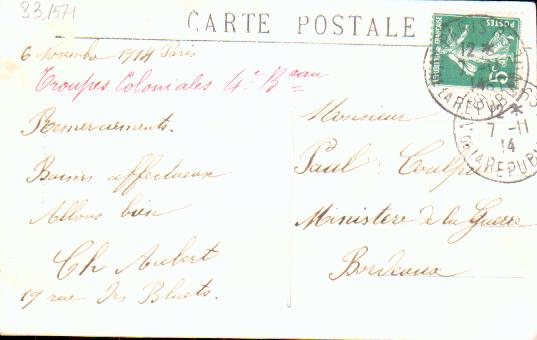 33,1571
CARTE POSTALE
6 Novembre 1914 Paris
Troupes Coloniales 4e Beau
Remerciements.
Baisers affectueux
Allons bien
Ch Aubert
19 rue des Bluets.
Monsieur
Paul
Ministere de la Guerre
Bordeaux
12 *
14
REPUB
12 *
7 - 11
14
REPUB